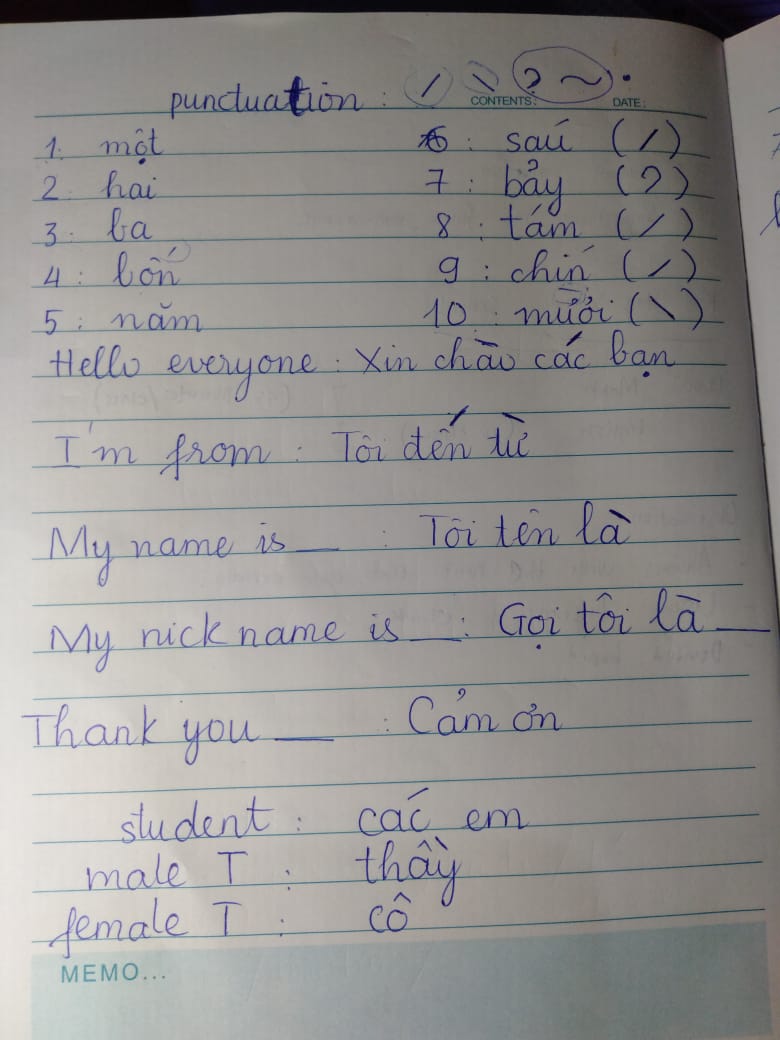 punctuation : / \ ? ~ .
CONTENTS: DATE:
1: một 6 : saú ( / )
2: hai 7 : bảy ( ? )
3: ba 8 : tám ( / )
4: bốn 9 : chín ( / )
5: năm 10 : mười ( \ )
Hello everyone : Xin chào các bạn
I'm from : Tôi đến từ
My name is __ : Tôi tên là
My nick name is __ : Gọi tôi là __
Thank you __ : Cảm ơn
student : các em
male T : thầy
female T : cô
MEMO...